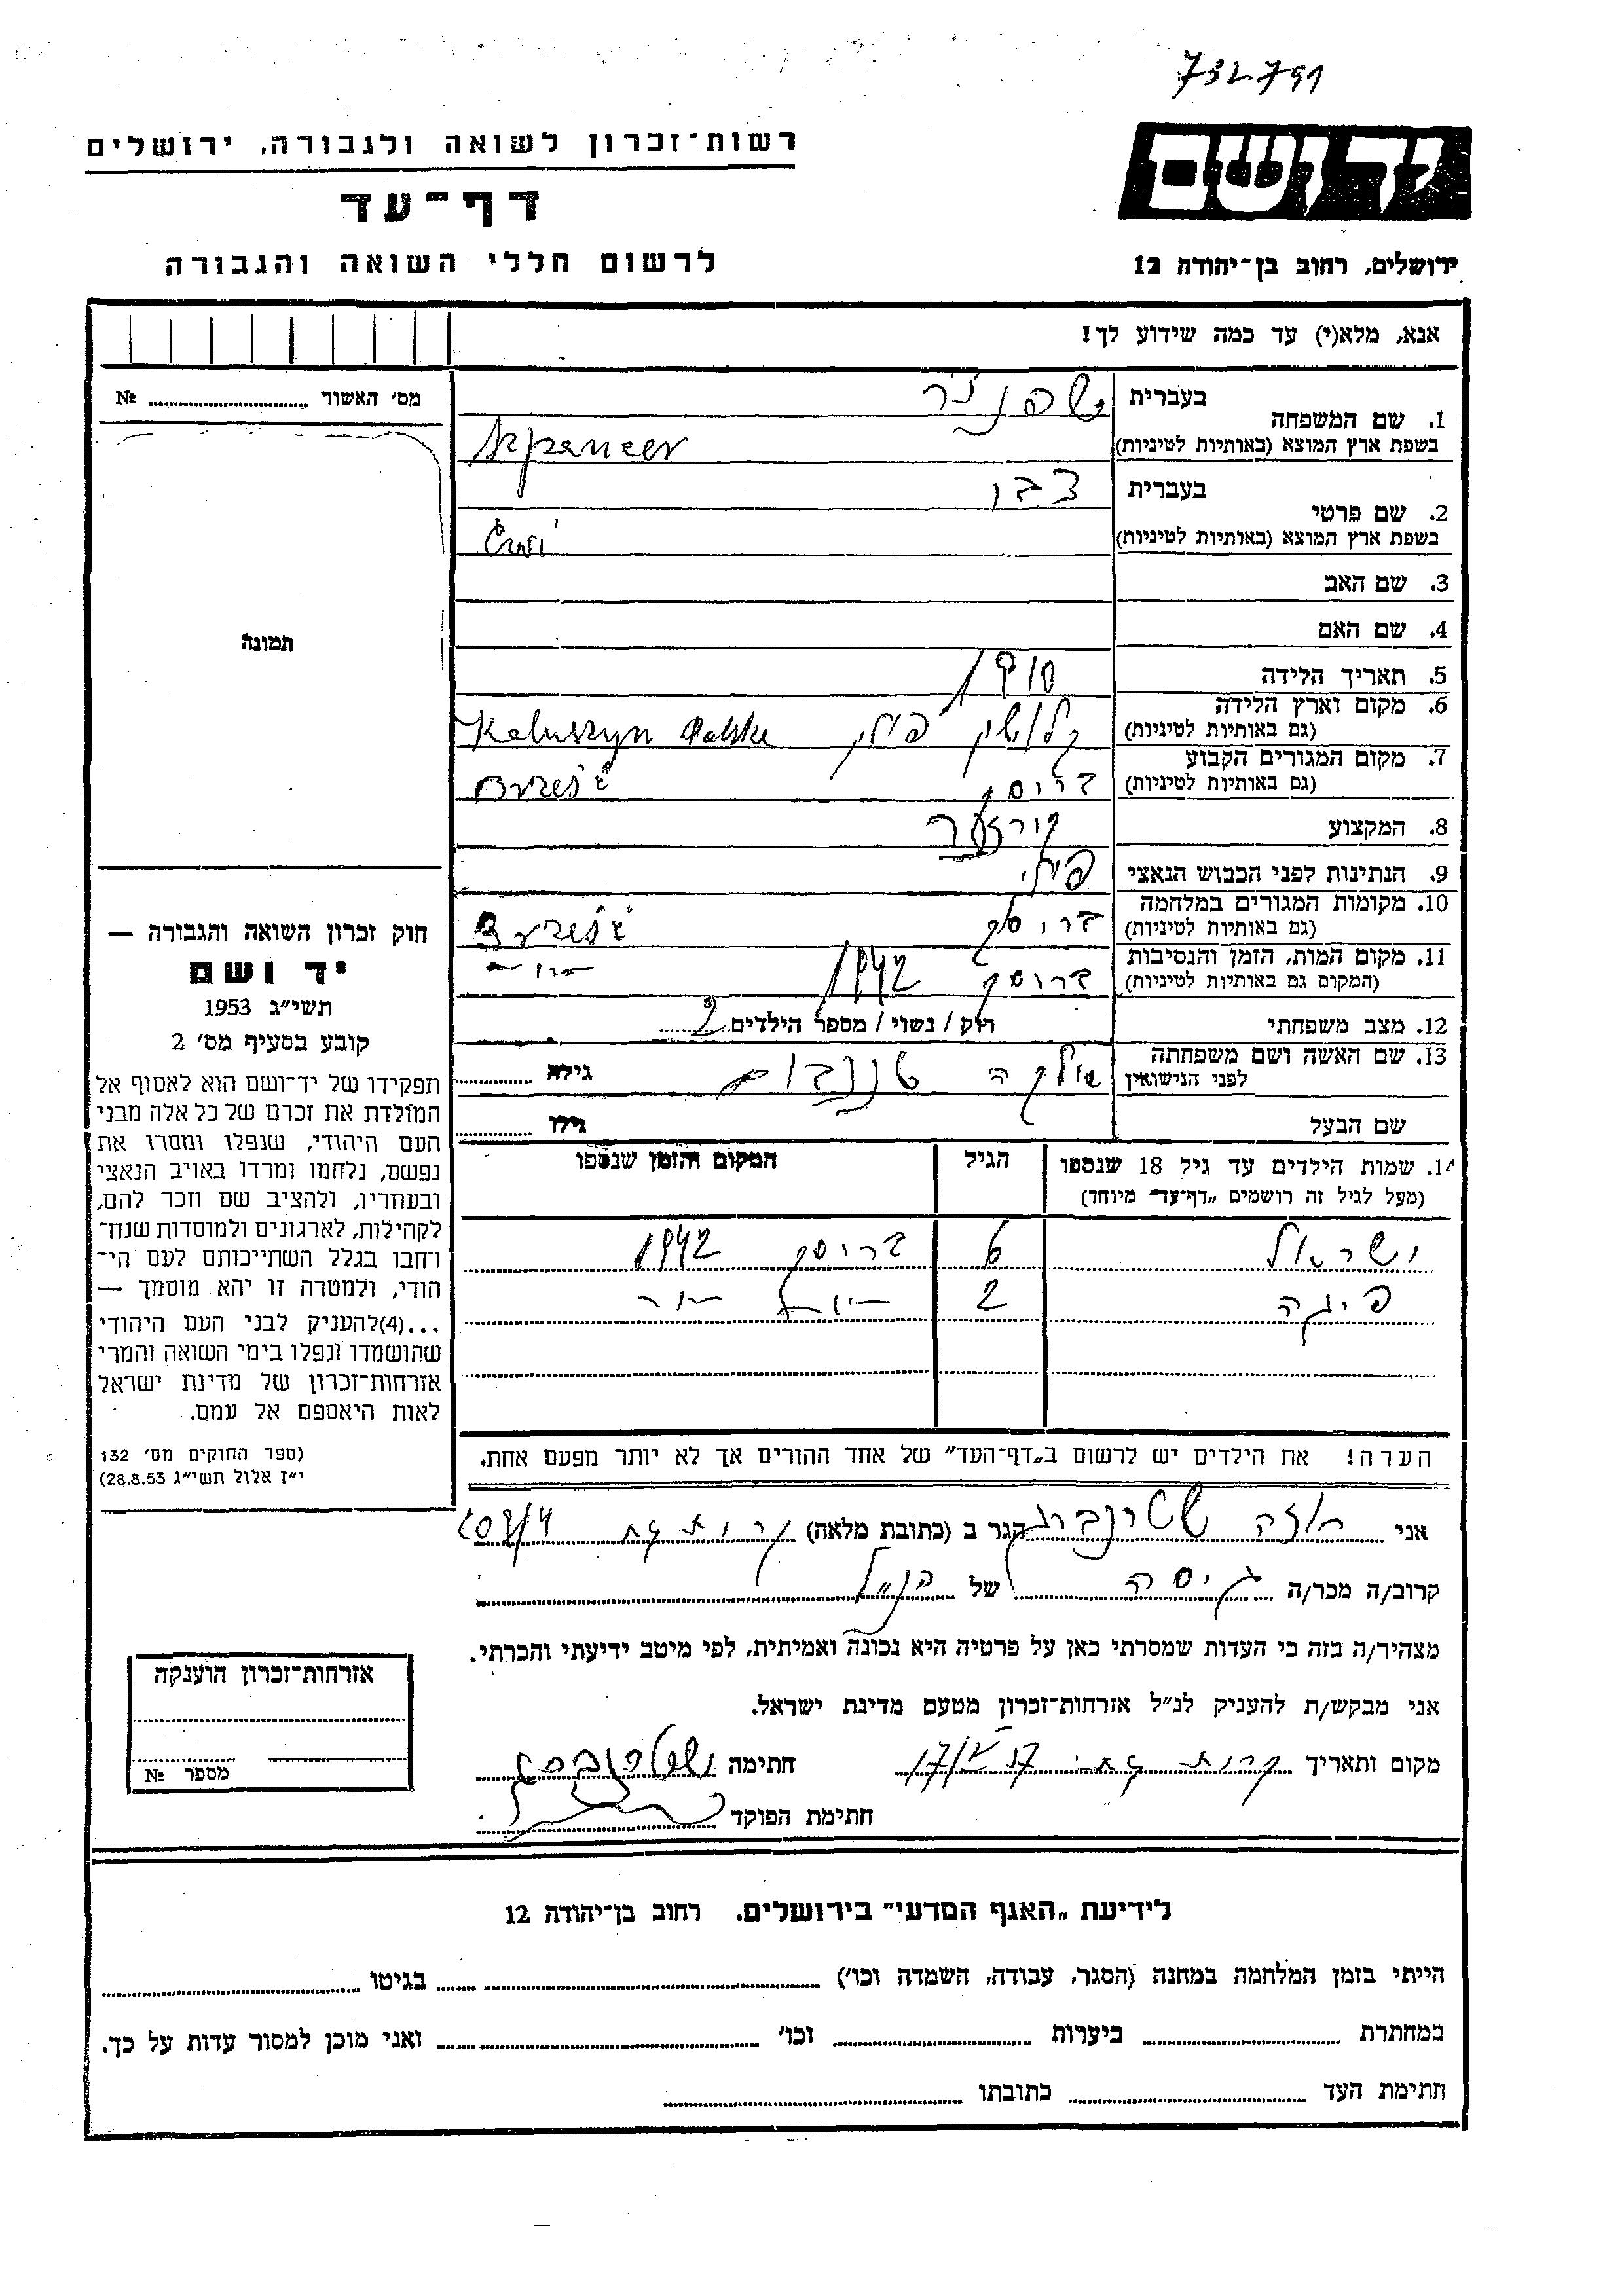 732791
רשות-זכרון לשואה ולגבורה, ירושלים
דף-עד
לרשום חללי השואה והגבורה
יד ושם
ירושלים, רחוב בן-יהודה 12
אנא, מלא(י) עד כמה שידוע לך!
מס' האשור № ........
תמונה
1. שם המשפחה בעברית שפנצר
בשפת ארץ המוצא (באותיות לטיניות)
2. שם פרטי בעברית צבי
בשפת ארץ המוצא (באותיות לטיניות) Cwi
3. שם האב
4. שם האם
5. תאריך הלידה 1910
6. מקום וארץ הלידה (גם באותיות לטיניות) קלושין פולין Kaluszyn Polske
7. מקום המגורים הקבוע (גם באותיות לטיניות) בריסק Brześć
8. המקצוע
9. הנתינות לפני הכבוש הנאצי פולני
10. מקומות המגורים במלחמה (גם באותיות לטיניות) בריסק Brześć
11. מקום המות, הזמן והנסיבות (המקום גם באותיות לטיניות) בריסק 1942 -"-
12. מצב משפחתי רווק / נשוי / מספר הילדים 2
13. שם האשה ושם משפחתה לפני הנישואין גילה ........
שם הבעל גילו ........
14. שמות הילדים עד גיל 18 שנספו הגיל המקום והזמן שנספו
(מעל לגיל זה רושמים "דף-עד" מיוחד)
ישראל 6 בריסק 1942
פיגה 2 -"- -"-
הערה! את הילדים יש לרשום ב"דף-העד" של אחד ההורים אך לא יותר מפעם אחת.
חוק זכרון השואה והגבורה —
יד ושם
תשי"ג 1953
קובע בסעיף מס' 2
תפקידו של יד-ושם הוא לאסוף אל
המולדת את זכרם של כל אלה מבני
העם היהודי, שנפלו ומסרו את
נפשם, נלחמו ומרדו באויב הנאצי
ובעוזריו, ולהציב שם וזכר להם,
לקהילות, לארגונים ולמוסדות שנח-
רחבו בגלל השתייכותם לעם הי-
הודי, ולמטרה זו יהא מוסמך —
...(4) להעניק לבני העם היהודי
שהושמדו ונפלו בימי השואה והמרי
אזרחות-זכרון של מדינת ישראל
לאות היאספם אל עמם.
(ספר החוקים מס' 132
י"ז אלול תשי"ג 28.8.53)
אני שטרנברג הגר ב (כתובת מלאה) קרית גת
קרוב/ה מכר/ה גיסה של הנ"ל
מצהיר/ה בזה כי העדות שמסרתי כאן על פרטיה היא נכונה ואמיתית, לפי מיטב ידיעתי והכרתי.
אני מבקש/ת להעניק לנ"ל אזרחות-זכרון מטעם מדינת ישראל.
מקום ותאריך קרית גת חתימה שטרנברג
חתימת הפוקד
אזרחות-זכרון הוענקה
מספר №
לידיעת "האגף המדעי" בירושלים, רחוב בן-יהודה 12
הייתי בזמן המלחמה במחנה (הסגר, עבודה, השמדה וכו') ........ בגיטו ........
במחתרת ........ ביערות ........ וכו' ........ ואני מוכן למסור עדות על כך.
חתימת העד ........ כתובתו ........